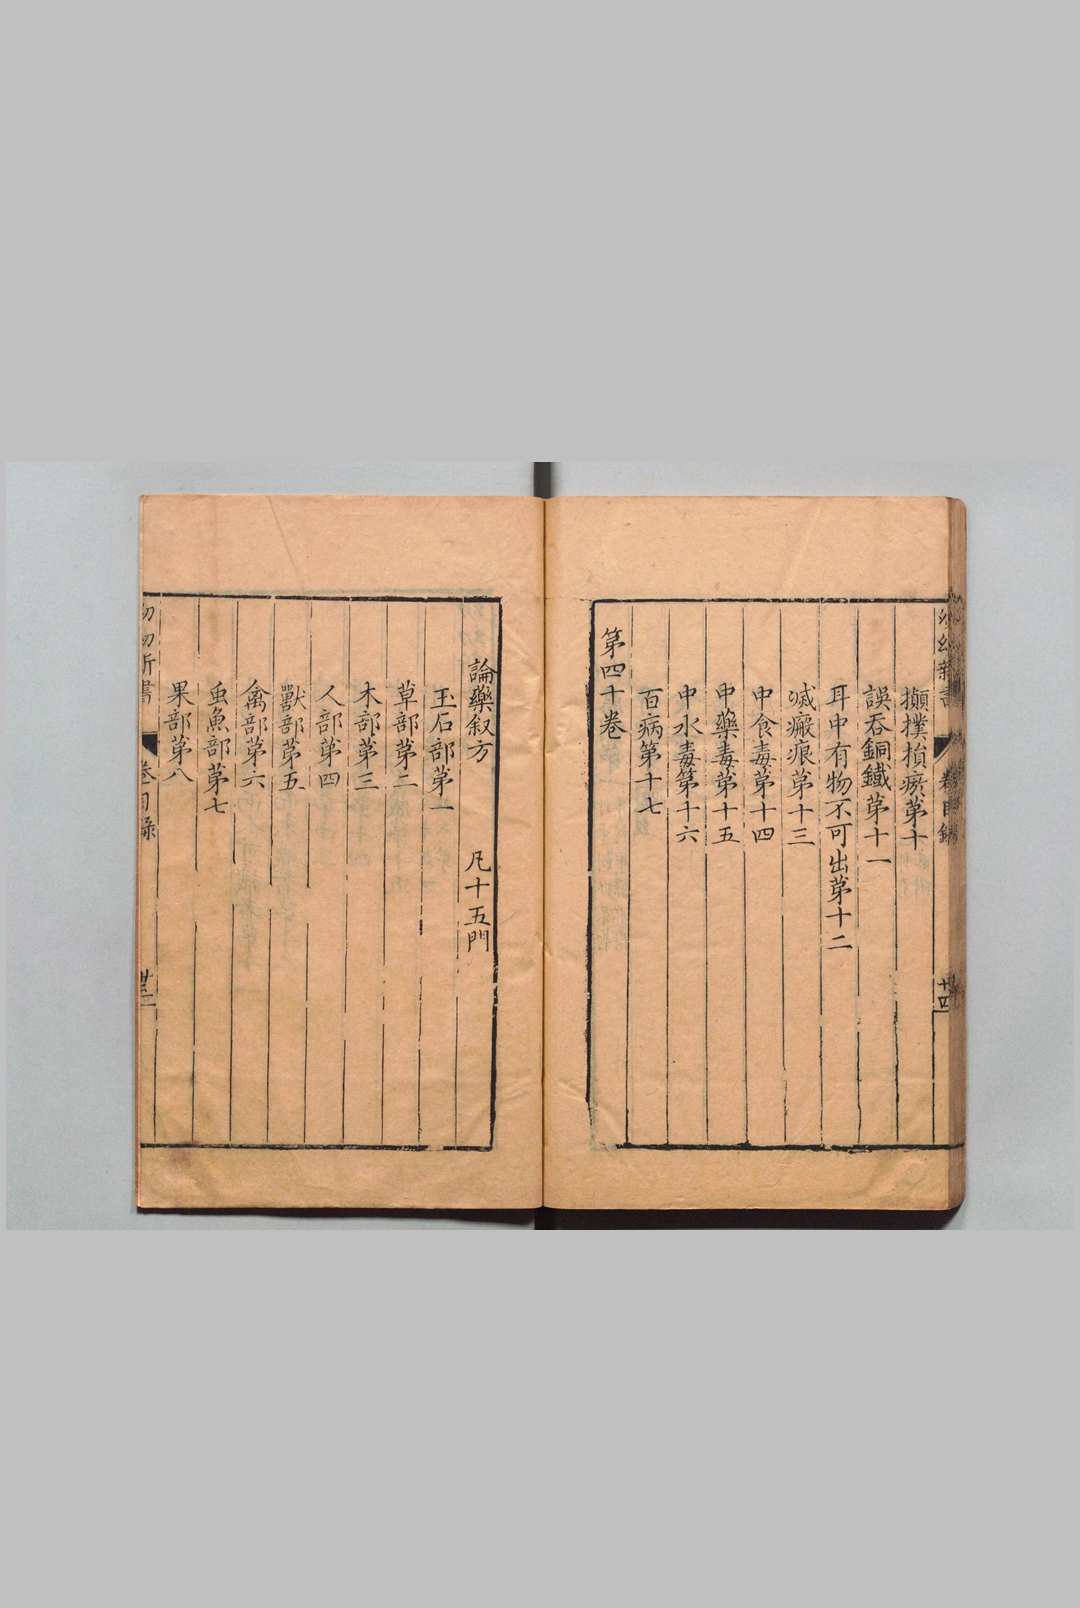 幼幼新書 卷目錄 十四
攧撲損瘀苐十
誤吞銅鐵苐十一
耳中有物不可出苐十二
滅瘢痕苐十三
中食毒苐十四
中藥毒苐十五
中水毒第十六
百病第十七
第四十卷
論藥叙方 凡十五門
玉石部苐一
草部苐二
木部苐三
人部苐四
獸部苐五
禽部苐六
虫魚部苐七
果部苐八
幼幼新書 卷目錄